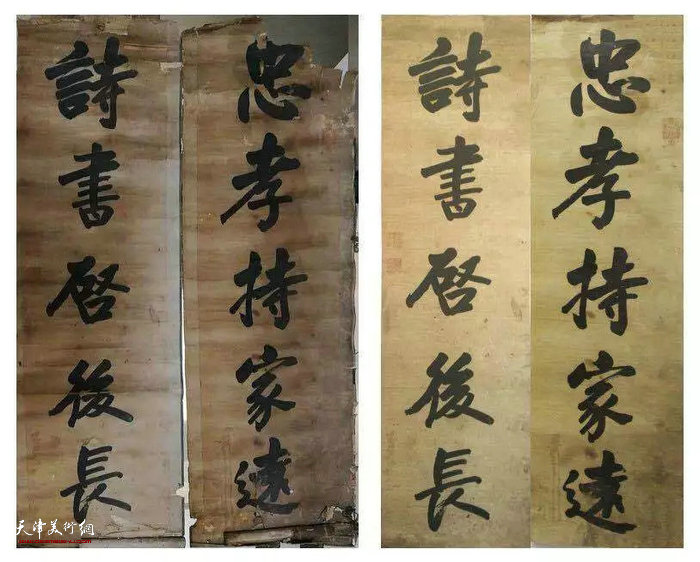 忠孝持家遠
詩書啓後長
忠孝持家遠
詩書啓後長
天津美術網